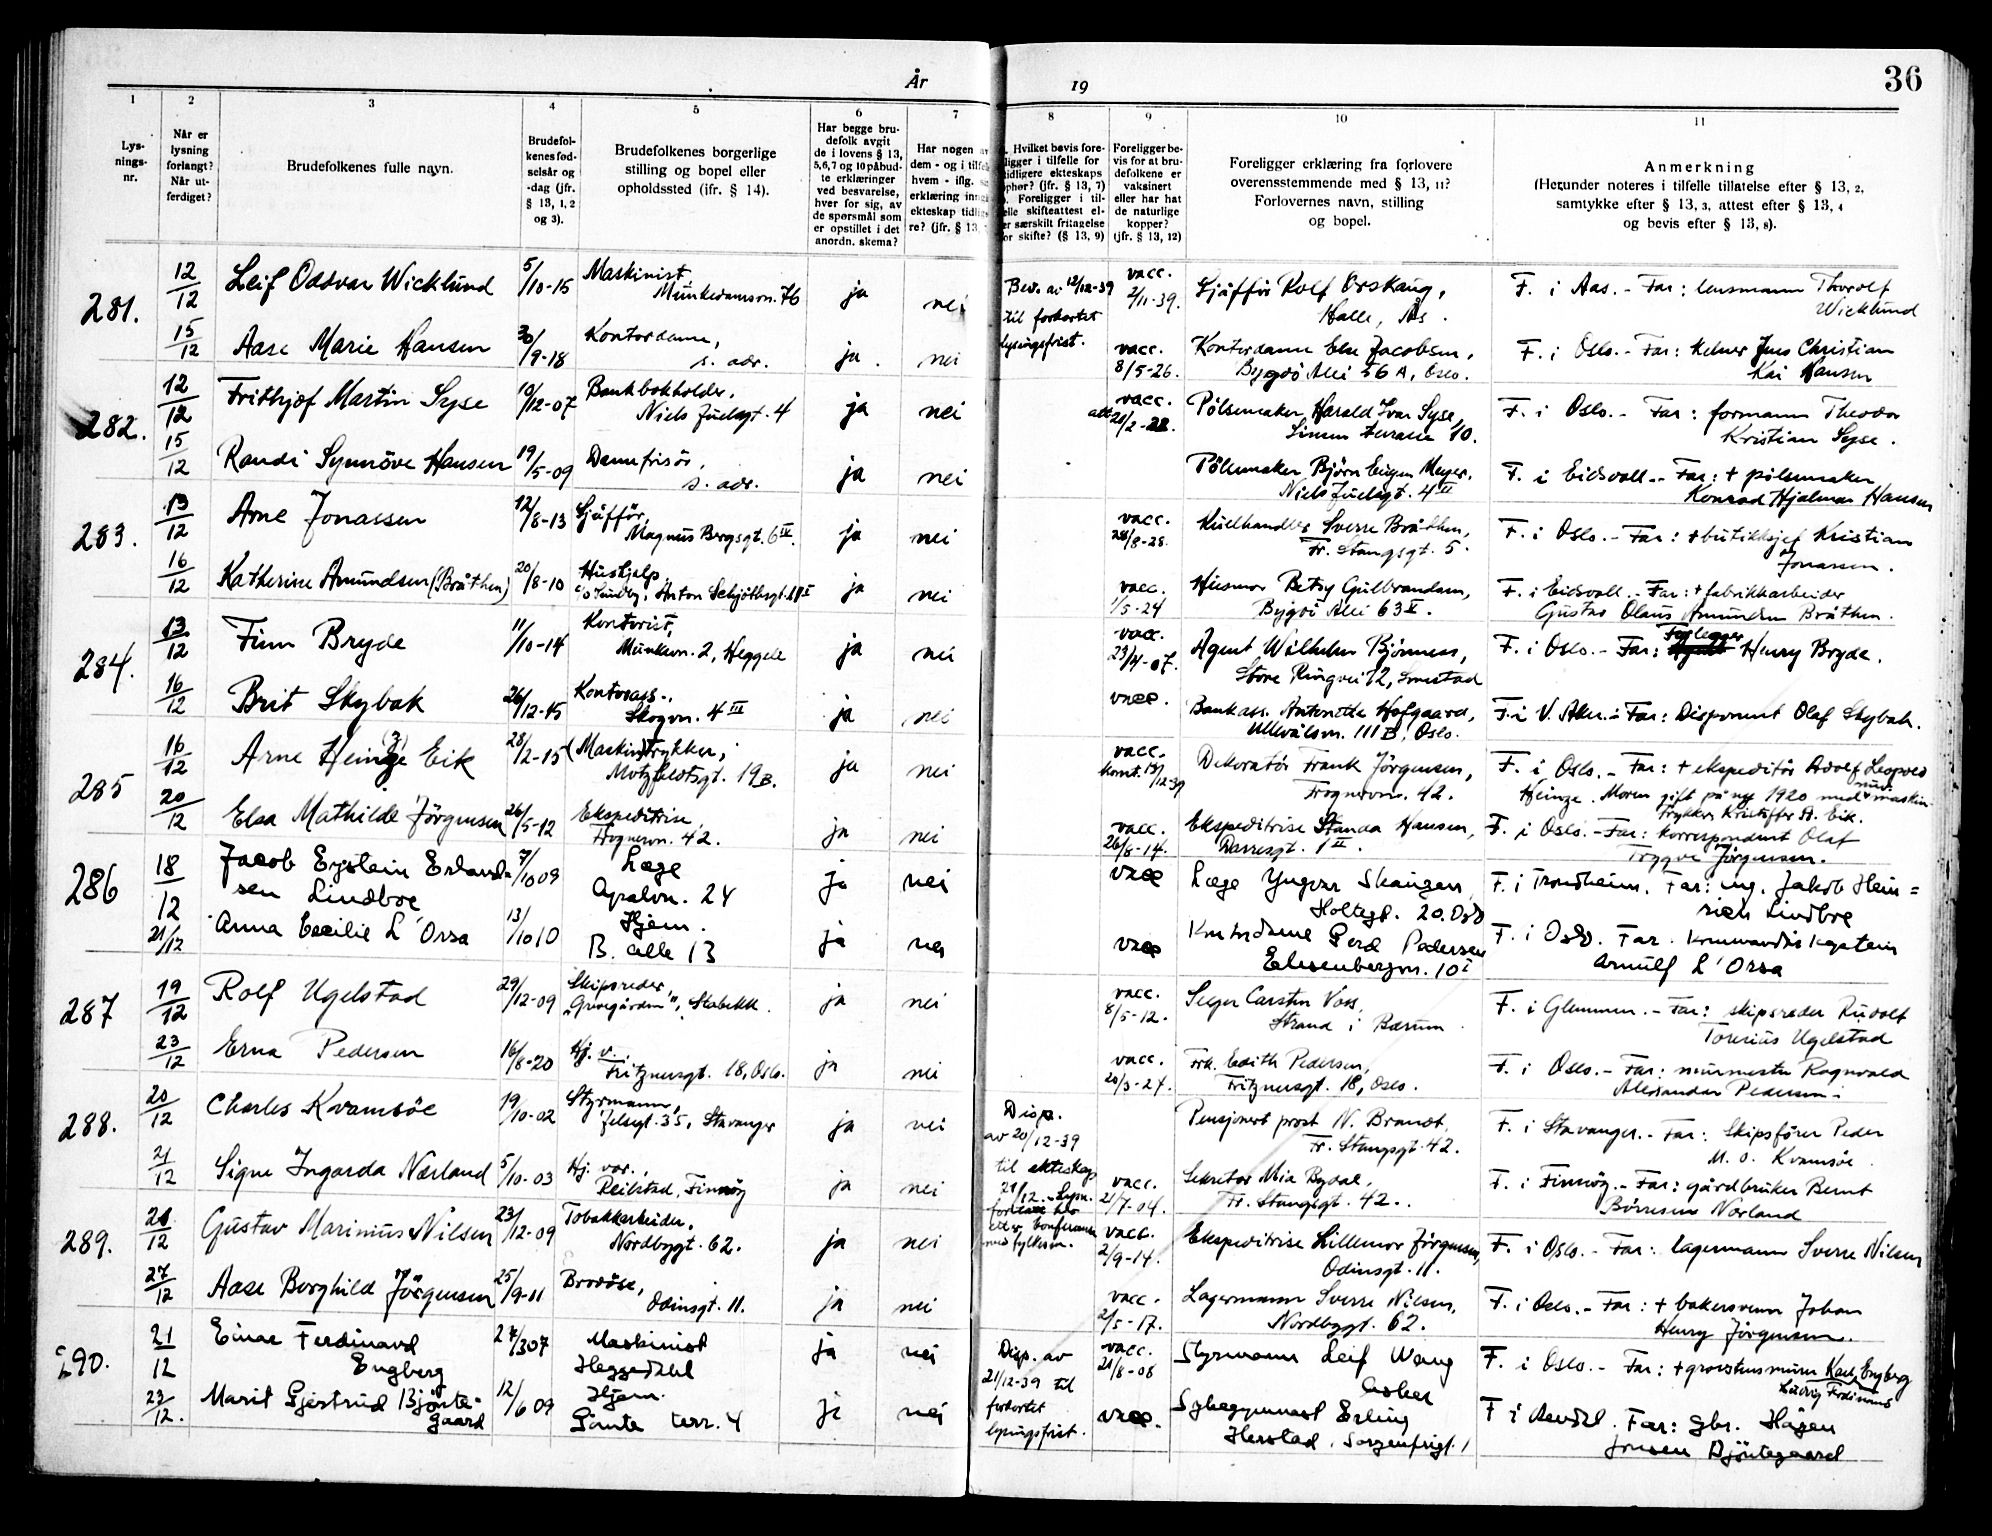 36
År
19
1 2 3 4 5 6 7 8 9 10 11
Lys-
nings-
nr.
Når er
lysning
forlangt?
Når ut-
ferdiget?
Brudefolkenes fulle navn.
Brudefol-
kenes fød-
selsår og
-dag (jfr.
§ 13, 1, 2
og 3).
Brudefolkenes borgerlige
stilling og bopel eller
opholdssted (ifr. § 14).
Har begge bru-
defolk avgit
de i lovens § 13,
5,6,7 og 10 påbud-
te erklæringer
ved besvarelse,
hver for sig, av
de spørsmål som
er opstillet i det
anordn. skema?
Har nogen av
dem - og i tilfelle
hvem - iflg.
erklæring inngå
ekteskap tidlige
re? (jfr. § 13,
Hvilket bevis fore-
ligger i tilfelle for
tidligere ekteskaps
ophør? (jfr. § 13, 7)
Foreligger i til-
felle skifteattest el-
er særskilt fritagelse
for skifte? (§ 13, 9)
Foreligger be-
vis for at bru-
defolkene er
vaksinert
eller har hat
de naturlige
kopper?
(jfr. § 13, 12)
Foreligger erklæring fra forlovere
overensstemmende med § 13, 11?
Forlovernes navn, stilling
og bopel.
Anmerkning
(Herunder noteres i tilfelle tillatelse efter § 13, 2,
samtykke efter § 13, 3, attest efter § 13, 4
og bevis efter § 13, 8).
281.
12/12 Leif Oddvar Wicklund 5/10-15 Maskinist
Munkedamsvn. 76 ja nei
Bev. av 12/12-39
til forkortet
lysingsfrist.
vacc.
2/11-39.
Sjåffør Rolf Orskaug,
Halle, Ås.
F. i Aas. - Far: lensmann Thorolf
Wicklund
15/12 Aase Marie Hansen 30/9-18 Kontordame,
s. adr. ja. nei
vacc.
8/5-26.
Kontordame Else Jacobsen,
Bygdö Alle 56 A, Oslo.
F. i Oslo. - Far: Kelner Jens Christian
Kai Hansen
282.
12/12 Frithjof Martin Syse 10/12-07 Bankbokholder,
Niels Juelsgt. 4 ja nei
vacc.
Pölsemaker Harald Ivar Syse,
Linsen terrasse 10.
F. i Oslo. - Far: formann Theodor
Kristian Syse.
15/12 Randi Synnöve Hansen 19/5-09 Damefrisör,
s. adr. ja nei
Pölsemaker Björn Eugen Meyer.
Niels Juelsgt. 4 II
F. i Eidsvoll. - Far: + pölsemaker
Konrad Hjalmar Hansen
283.
13/12 Arne Jonassen 12/8-13 Sjåffør,
Magnus Bergsgt. 6 IV. ja nei
vacc.
28/8-28.
Sverre Bråthen,
Fr. Stangsgt. 5.
F. i Oslo. - Far: + butikksjef Kristian
Jonassen.
16/12 Katherine Amundsen (Bråthen) 20/8-10 Hushjelp
c/o Lundby, Anton Schjöthsgt. ja nei
vacc.
1/5-24
Husmor Betsy Gulbrandsen,
Bygdö Alle 63 II.
F. i Eidsvoll. - Far: + fabrikkarbeider
Gustav Olaus Amundsen Bråthen.
284.
13/12 Finn Bryde 11/10-14 Kontorist,
Munkevn. 2, Heggeli ja nei
vacc.
23/4-07.
Agent Wilhelm Björness,
Store Ringvei 72, Smestad
F. i Oslo. - Far: forlegger Henry Bryde.
16/12 Brit Skybak 26/12-15 Kontorass.,
Skogvn. 4 III ja nei
vacc.
Bankass. Antonette Hofgaard,
Ullevålsvn. 111 B, Oslo.
F. i V. Aker. - Far: Disponent Olaf Skybak.
285
16/12 Arne Heinze (z) Eik 28/2-15 (Maskin)trykker,
Motzfeldtsgt. 19 B. ja nei
vacc.
Dekoratör Frank Jörgensen,
Frognervn. 42.
F. i Oslo. - Far: + ekspeditör Adolf Leopold
Heinze. Moren gift på ny 1920 med maskin-
trykker Kristoffer A. Eik.
20/12 Elsa Mathilde Jörgensen 26/5-12 Ekspeditrise,
Frognervn. 42. ja nei
vacc.
26/8-14.
Ekspeditrise Wanda Hansen,
Darresgt. 1 II.
F. i Oslo. - Far: korrespondent Olaf
Trygve Jörgensen.
286
18/12 Jacob Eystein Erland-
sen Lindboe 7/10 09 Læge
Apalvn. 24 ja nei
vacc
Læge Yngvar Skaugen
Holtegt. 20. Oslo
F. i Trondheim. Far: ing. Jakob Hein=
rich Lindboe
21/12 Anna Cecilie L'Orsa 13/10 10 Hjem.
B. alle 13 ja nei
vacc
Kontordame Gerd Pedersen
Elisenbergvn. 10 I
F. i Oslo. Far. kommandörkaptein
Arnulf L'Orsa
287
19/12 Rolf Ugelstad 29/12-09 Skipsreder,
"Grinegården", Stabekk. ja nei
vacc.
8/5-12.
Selger Carsten Voss,
Strand i Bærum.
F. i Glemmen. - Far: skipsreder Rudolf
Torinius Ugelstad
23/12 Erna Pedersen 16/8-20 Hj. v.
Fritznersgt. 18, Oslo. ja nei
vacc.
20/3-27.
Frk. Edith Pedersen,
Fritznersgt. 18, Oslo.
F. i Oslo. - Far: murmester Ragnvald
Alexander Pedersen.
288.
20/12 Charles Kvamsöe 19/10-02 Styrmann,
Jelsgt. 35, Stavanger ja nei
Disp.
av 20/12-39
til ekteskap
21/12.
Pensjonert prost N. Brandt,
Fr. Stangsgt. 42.
F. i Stavanger. - Far: Skipsförer Peder
M. O. Kvamsöe.
21/12 Signe Ingarda Nærland 5/10-03 Hj. vær.,
Reilstad, Finnöy ja nei
vacc.
21/7-04.
Sekretær Mia Bydal,
Fr. Stangsgt. 42.
F. i Finnöy. - Far: gårdbruker Bernt
Börresen Nærland
289.
20/12 Gustav Marinius Nilsen 23/12-09 Tobakkarbeider,
Nordbygt. 62. ja nei
vacc.
2/9-14.
Ekspeditrise Lillemor Jörgensen,
Odinsgt. 11.
F. i Oslo. - Far: lagermann Sverre Nilsen
27/12 Aase Borghild Jörgensen 25/9-11 Brodöse,
Odinsgt. 11. ja nei
vacc.
2/5-17.
Lagermann Sverre Nilsen,
Nordbygt. 62.
F. i Oslo. - Far: + bakersvenn Johan
Henry Jörgensen.
290.
21/12 Einar Ferdinand
Engberg 27/3 07 Maskinist
Heggedahl ja nei
Disp. av
21/12-39 til
forkortet
lysingsfrist.
vacc.
21/8-08
Styrmann Leif Wang
Asker
F. i Oslo. - Far: + grovstusmurer Karl Engberg
Ludvig Ferdinand
23/12. Marit Gjertrud Bjönte-
gaard 12/6 09 Hjem.
Gimle terr. 4 ja nei
vacc.
Sykegymnast Erling
Herstad, Sorgenfrigt. 1
F i Arendal. Far: gbr. Hågen
Jonsen Bjöntegaard